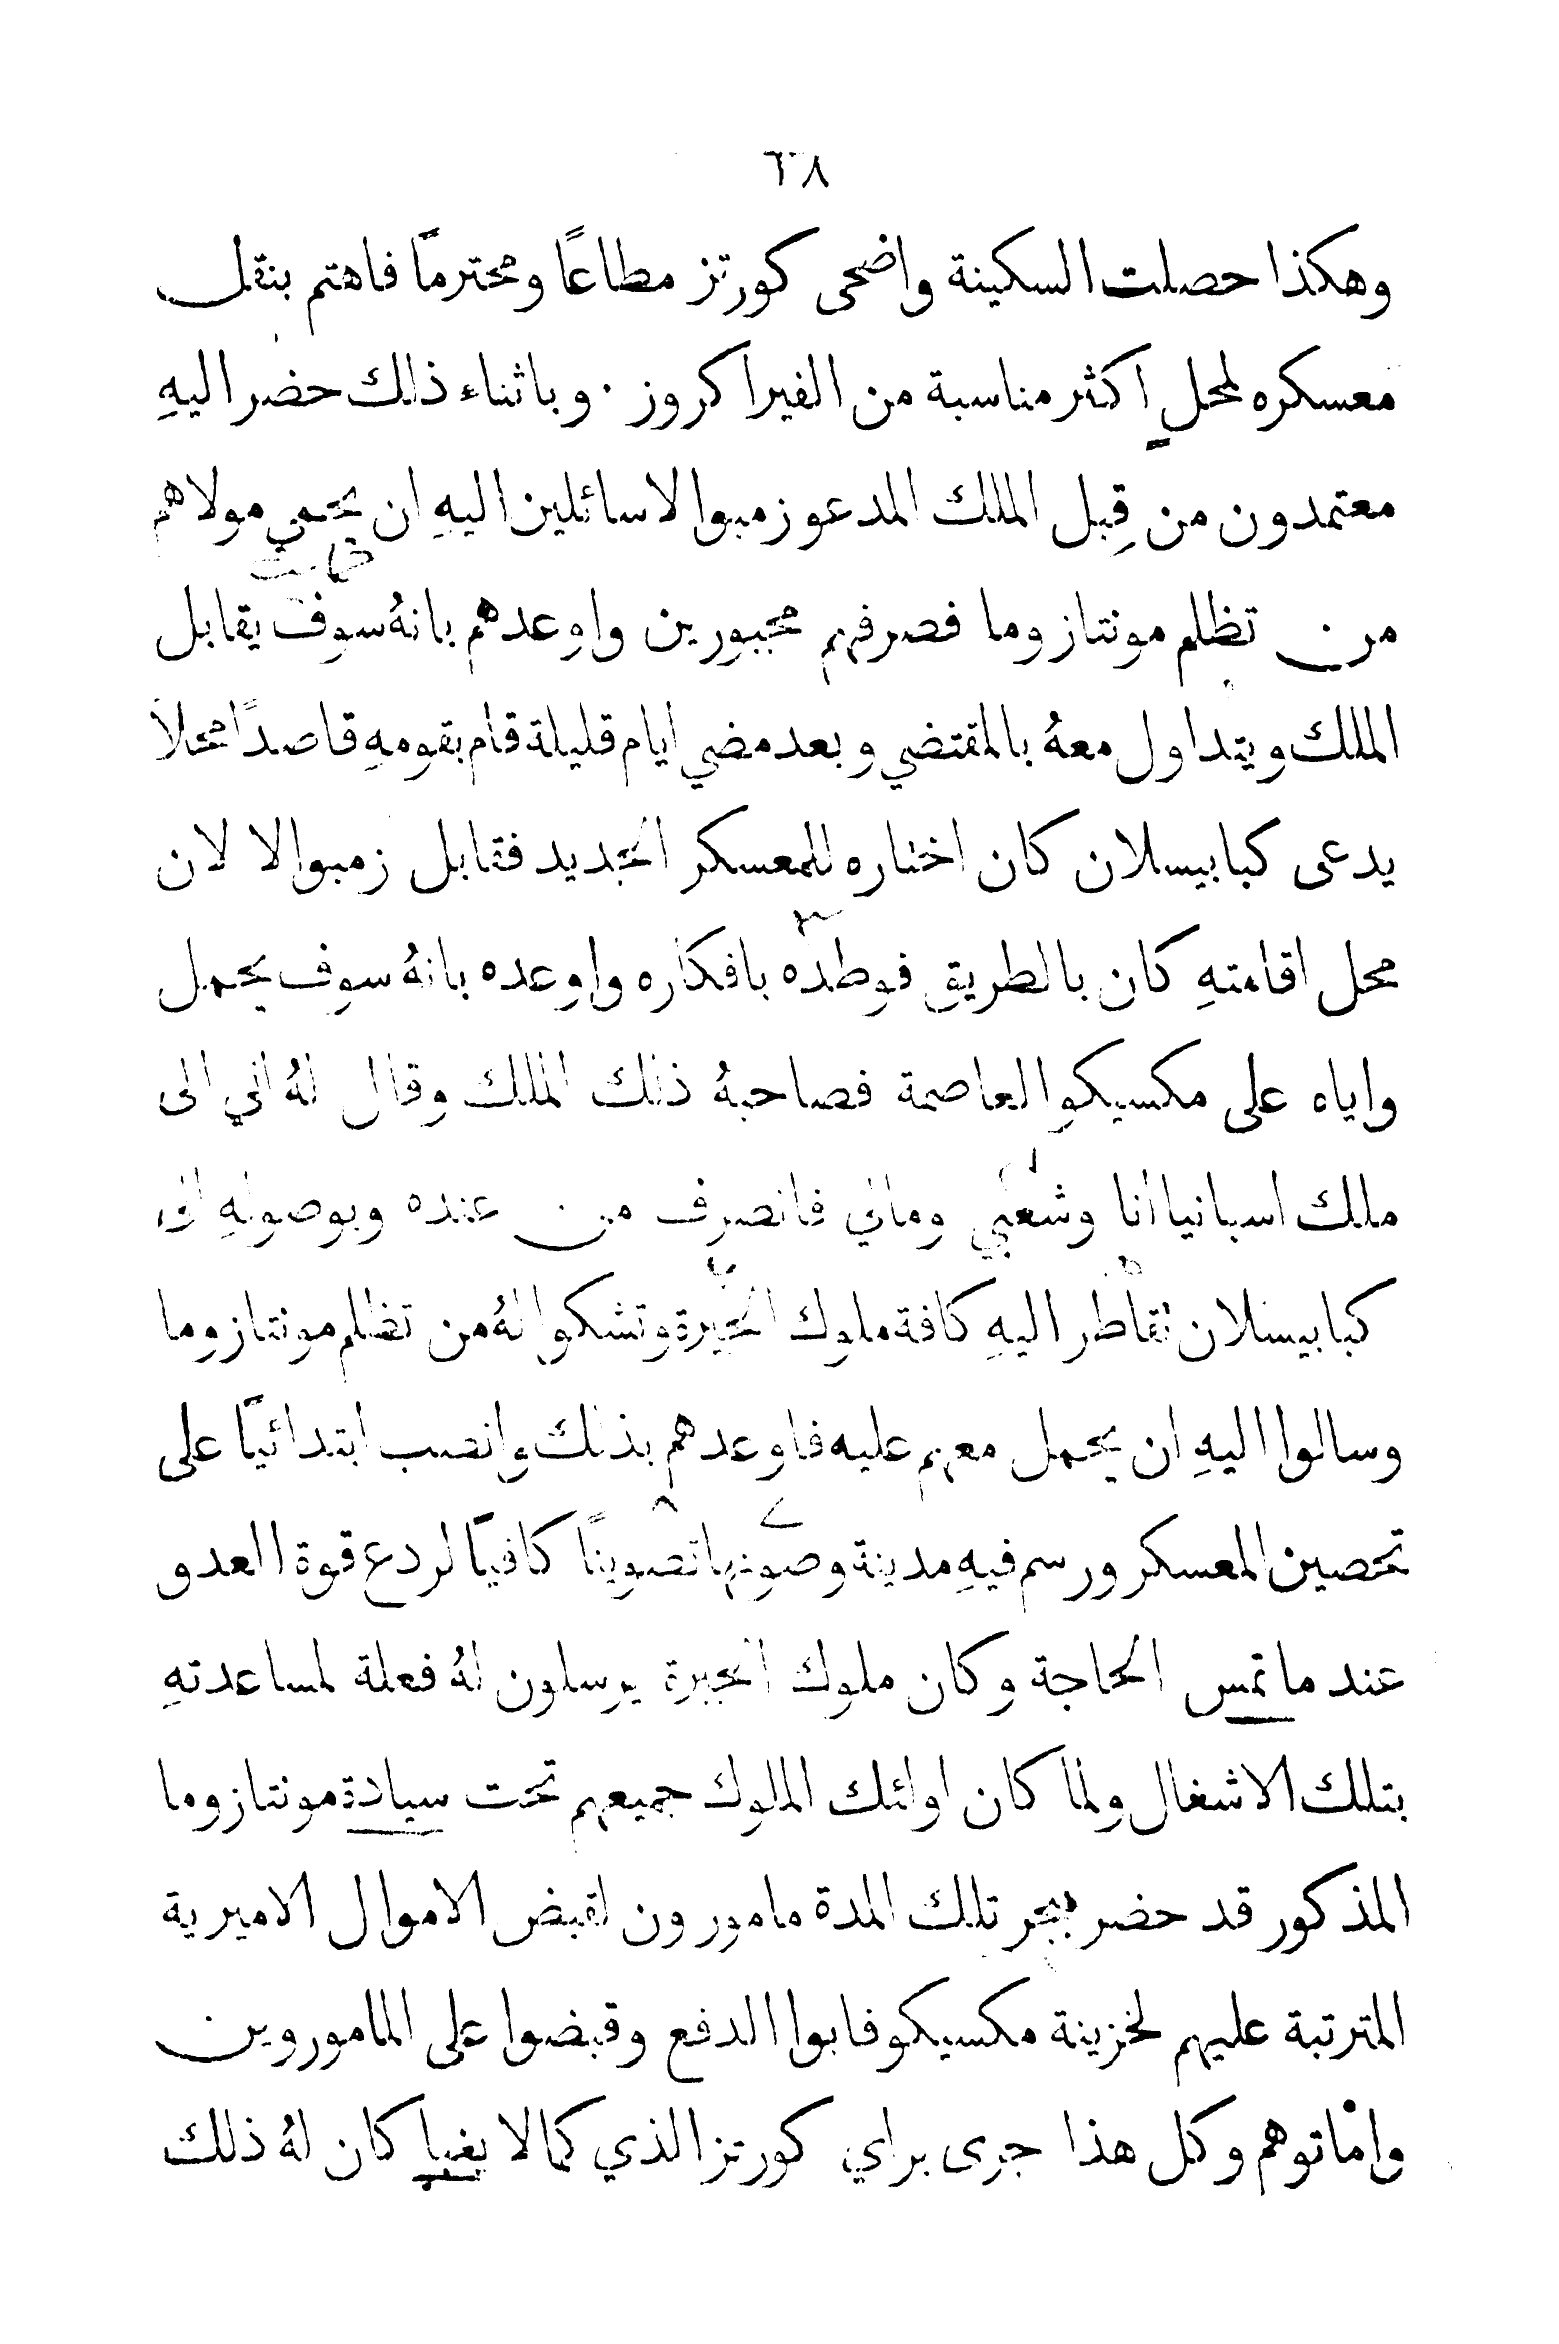 ٦٨
وهكذا حصلت السكينة واضحى كورتز مطاعًا ومحترمًا فاهتم بنقل
معسكره لمحلٍ اكثر مناسبة من الفيرا كروز ٠ وباثناء ذلك حضر اليهِ
معتمدون من قِبل الملك المدعو زمبوالا سائلين اليهِ ان يحمي مولاهم
من تظلم مونتازوما فصرفهم مجبورين واوعدهم بانهُ سوف يقابل
الملك ويتداول معهُ بالمقتضي وبعد مضي ايام قليلة قام بقومهِ قاصدًا محلاً
يدعى كبابيسلان كان اختاره للمعسكر الجديد فقابل زمبوالا لان
محل اقامتهِ كان بالطريق فوطده بافكاره واوعده بانهُ سوف يحمل
واياه على مكسيكو العاصمة فصاحبهُ ذلك الملك وقال لهُ اني الى
ملك اسبانيا انا وشعبي ومالي فانصرف من عنده وبوصولهِ الى
كبابيسلان تقاطر اليهِ كافة ملوك الجيرة وتشكوا لهُ من تظلم مونتازوما
وسالوا اليهِ ان يحمل معهم عليه فاوعدهم بذلك وانصب ابتدائيًا على
تحصين المعسكر ورسم فيهِ مدينة وصونها تصوينًا كافيًا لردع قوة العدو
عند ما تمس الحاجة وكان ملوك الجيرة يرسلون لهُ فعلة لمساعدتهِ
بتلك الاشغال ولما كان اوائك الملوك جميعهم تحت سيادة مونتازوما
المذكور قد حضر بجر تلك المدة مامورون لقبض الاموال الاميرية
المترتبة عليهم لخزينة مكسيكو فابوا الدفع وقبضوا على الماموروين
واماتوهم وكل هذا جرى براي كورتز الذي كما لا يغبا كان لهُ ذلك